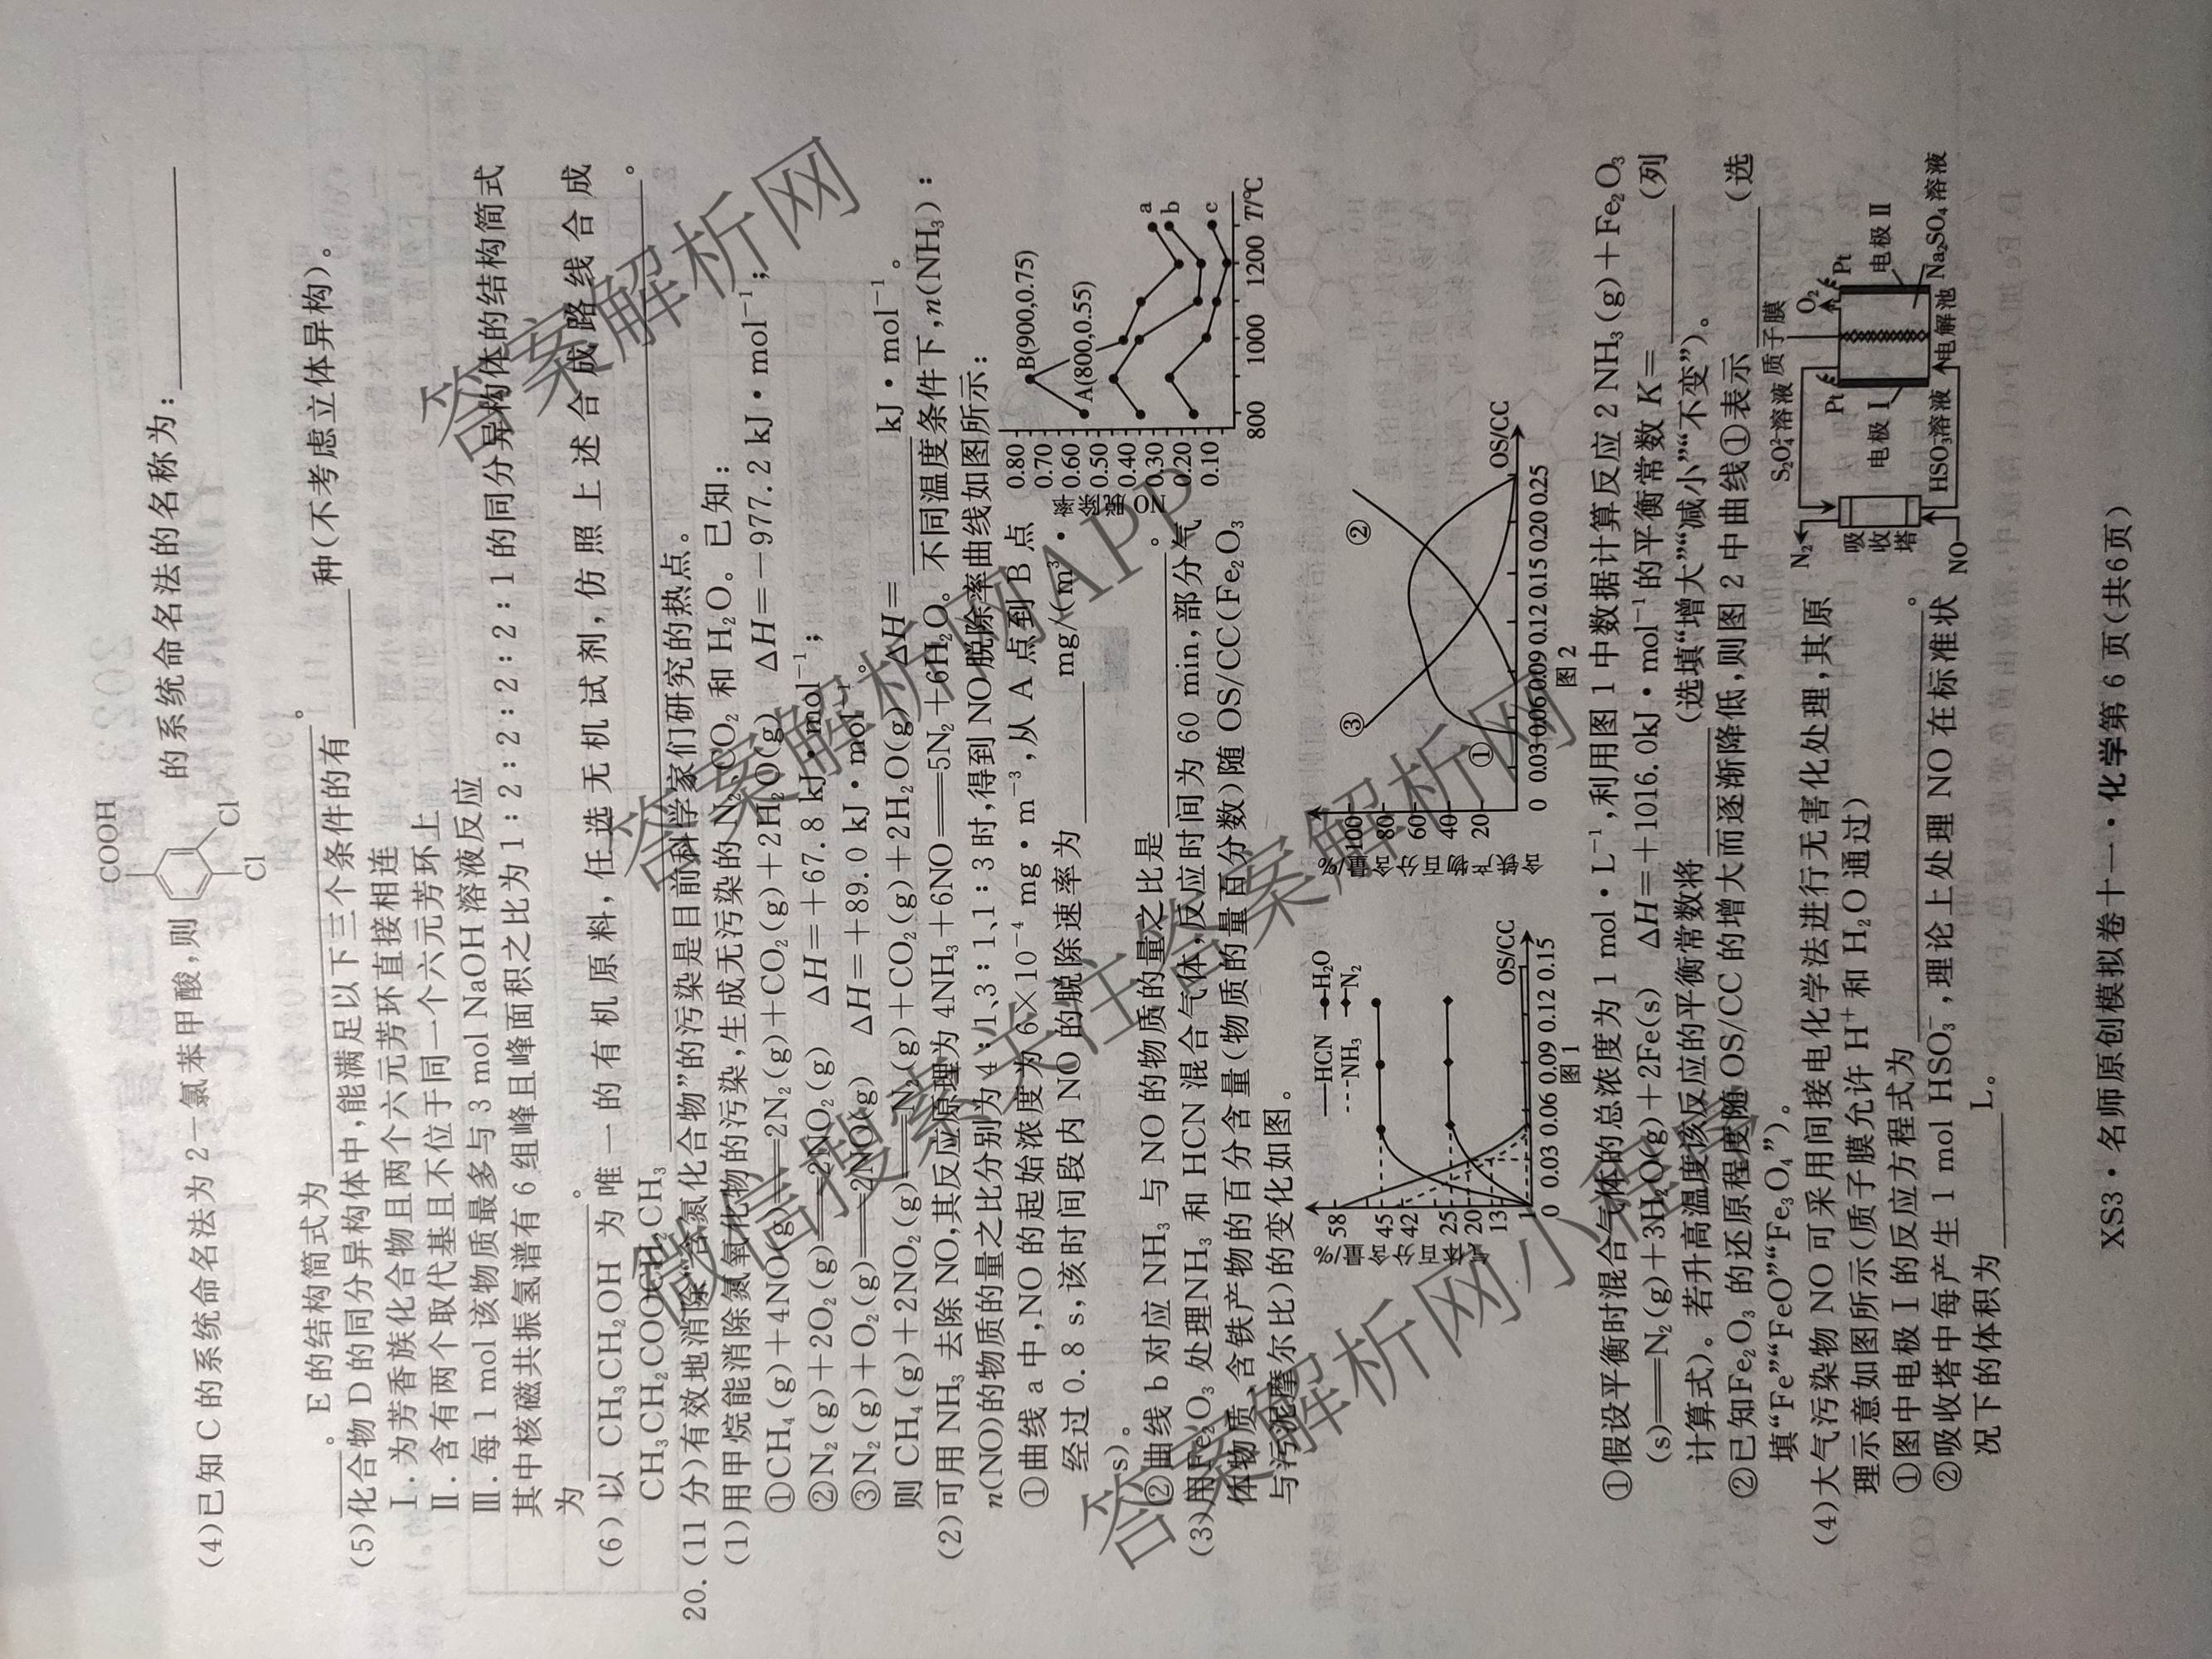 COOH
Cl
Cl
(4)已知 C 的系统命名法为 2—氯苯甲酸,则 的系统命名法的名称为:
。E 的结构简式为 。
(5)化合物 D 的同分异构体中,能满足以下三个条件的有 种(不考虑立体异构)。
Ⅰ.为芳香族化合物且两个六元芳环直接相连
Ⅱ.含有两个取代基且不位于同一个六元芳环上
Ⅲ.每 1 mol 该物质最多与 3 mol NaOH 溶液反应
其中核磁共振氢谱有 6 组峰且峰面积之比为 1:2:2:2:2:1 的同分异构体的结构简式
为 。
(6)以 CH₃CH₂CH₂OH 为唯一的有机原料,任选无机试剂,仿照上述合成路线合成
CH₃CH₂COOCH₂CH₂CH₃ 。
20.(11 分)有效地消除“含氮化合物”的污染是目前科学家们研究的热点。
(1)用甲烷能消除氮氧化物的污染,生成无污染的 N₂、CO₂ 和 H₂O。已知:
①CH₄(g)+4NO(g)══2N₂(g)+CO₂(g)+2H₂O(g) ΔH=−977.2 kJ·mol⁻¹;
②N₂(g)+2O₂(g)══2NO₂(g) ΔH=+67.8 kJ·mol⁻¹;
③N₂(g)+O₂(g)══2NO(g) ΔH=+89.0 kJ·mol⁻¹。
则 CH₄(g)+2NO₂(g)══N₂(g)+CO₂(g)+2H₂O(g) ΔH= kJ·mol⁻¹。
(2)可用 NH₃ 去除 NO,其反应原理为 4NH₃+6NO══5N₂+6H₂O。不同温度条件下,n(NH₃):
n(NO)的物质的量之比分别为 4:1、3:1、1:3 时,得到 NO 脱除率曲线如图所示:
①曲线 a 中,NO 的起始浓度为 6×10⁻⁴ mg·m⁻³,从 A 点到 B 点
经过 0.8 s,该时间段内 NO 的脱除速率为 mg/(m³·
s)。
NO脱除率
0.80
0.70
0.60
0.50
0.40
0.30
0.20
0.10
B(900,0.75)
A(800,0.55)
a
b
c
800 1000 1200 T/℃
②曲线 b 对应 NH₃ 与 NO 的物质的量之比是 。
(3)用Fe₂O₃ 处理NH₃ 和 HCN 混合气体,反应时间为 60 min,部分气
体物质、含铁产物的百分含量(物质的量百分数)随 OS/CC(Fe₂O₃
与污泥摩尔比)的变化如图。
气体百分含量/%
58
45
42
25
20
13
1
—HCN
H₂O
---NH₃
N₂
OS/CC
0 0.03 0.06 0.09 0.12 0.15
图 1
含铁产物百分含量/%
100
80
60
40
20
①
②
③
OS/CC
0 0.03 0.06 0.09 0.12 0.15 0.20 0.25
图 2
①假设平衡时混合气体的总浓度为 1 mol·L⁻¹,利用图 1 中数据计算反应 2 NH₃(g)+Fe₂O₃
(s)══N₂(g)+3H₂O(g)+2Fe(s) ΔH=+1016.0kJ·mol⁻¹的平衡常数 K= (列
计算式)。若升高温度该反应的平衡常数将 (选填“增大”“减小”“不变”)。
②已知Fe₂O₃ 的还原程度随 OS/CC 的增大而逐渐降低,则图 2 中曲线①表示 (选
填“Fe”“FeO”“Fe₃O₄”)。
(4)大气污染物 NO 可采用间接电化学法进行无害化处理,其原
理示意如图所示(质子膜允许 H⁺ 和 H₂O 通过)
①图中电极 Ⅰ 的反应方程式为 。
②吸收塔中每产生 1 mol HSO₃⁻,理论上处理 NO 在标准状
况下的体积为 L。
N₂
S₂O₄²⁻溶液
质子膜
O₂
Pt
Pt
吸收塔
电极 Ⅰ
电极 Ⅱ
HSO₃⁻溶液
电解池
Na₂SO₄ 溶液
NO
XS3·名师原创模拟卷十一·化学第 6 页(共6页)
答案解析网
答案解析网
答案解析网